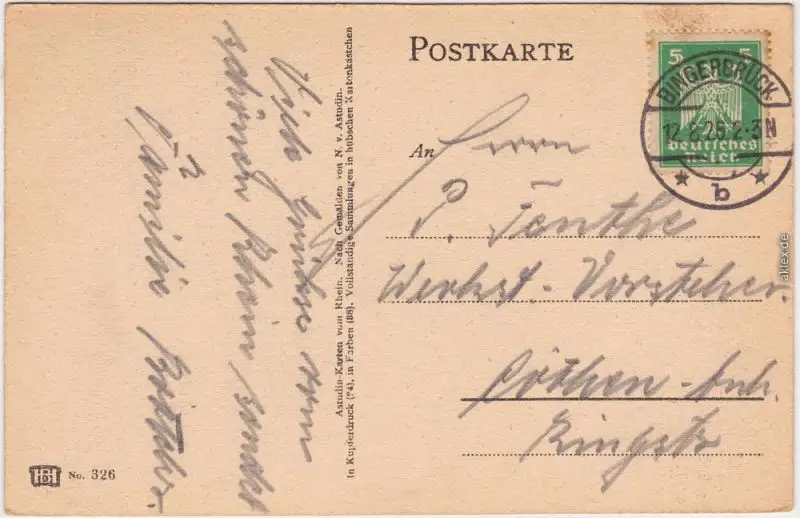 POSTKARTE
5 5
BINGERBRÜCK
12.8.25.2-3N
Deutsches
Reich
* b *
An Herrn
P. Tänthe
Werkst.-Vorsteher.
Cöthen-Anh.
Ringstr.
Viele Grüße vom
schönen Rhein sendet
Familie
Astudin-Karten vom Rhein. Nach Gemälden von N. v. Astudin.
In Kupferdruck (94), in Farben (88). Vollständige Sammlungen in hübschen Kartonkästchen
HB No. 326
akpool.de